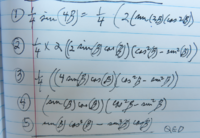 ① 1/4 sin(4β) = 1/4 (2(sin(2β)cos(2β)
② 1/4 × 2 (2 sin(β)cos(β))(cos²β - sin²β)
③ 1/4 ((4 sin(β)cos(β))(cos²β - sin²β)
④ (sin(β)cos(β))(cos²β - sin²β)
5) sin(β)cos³β - sin³β cosβ QED